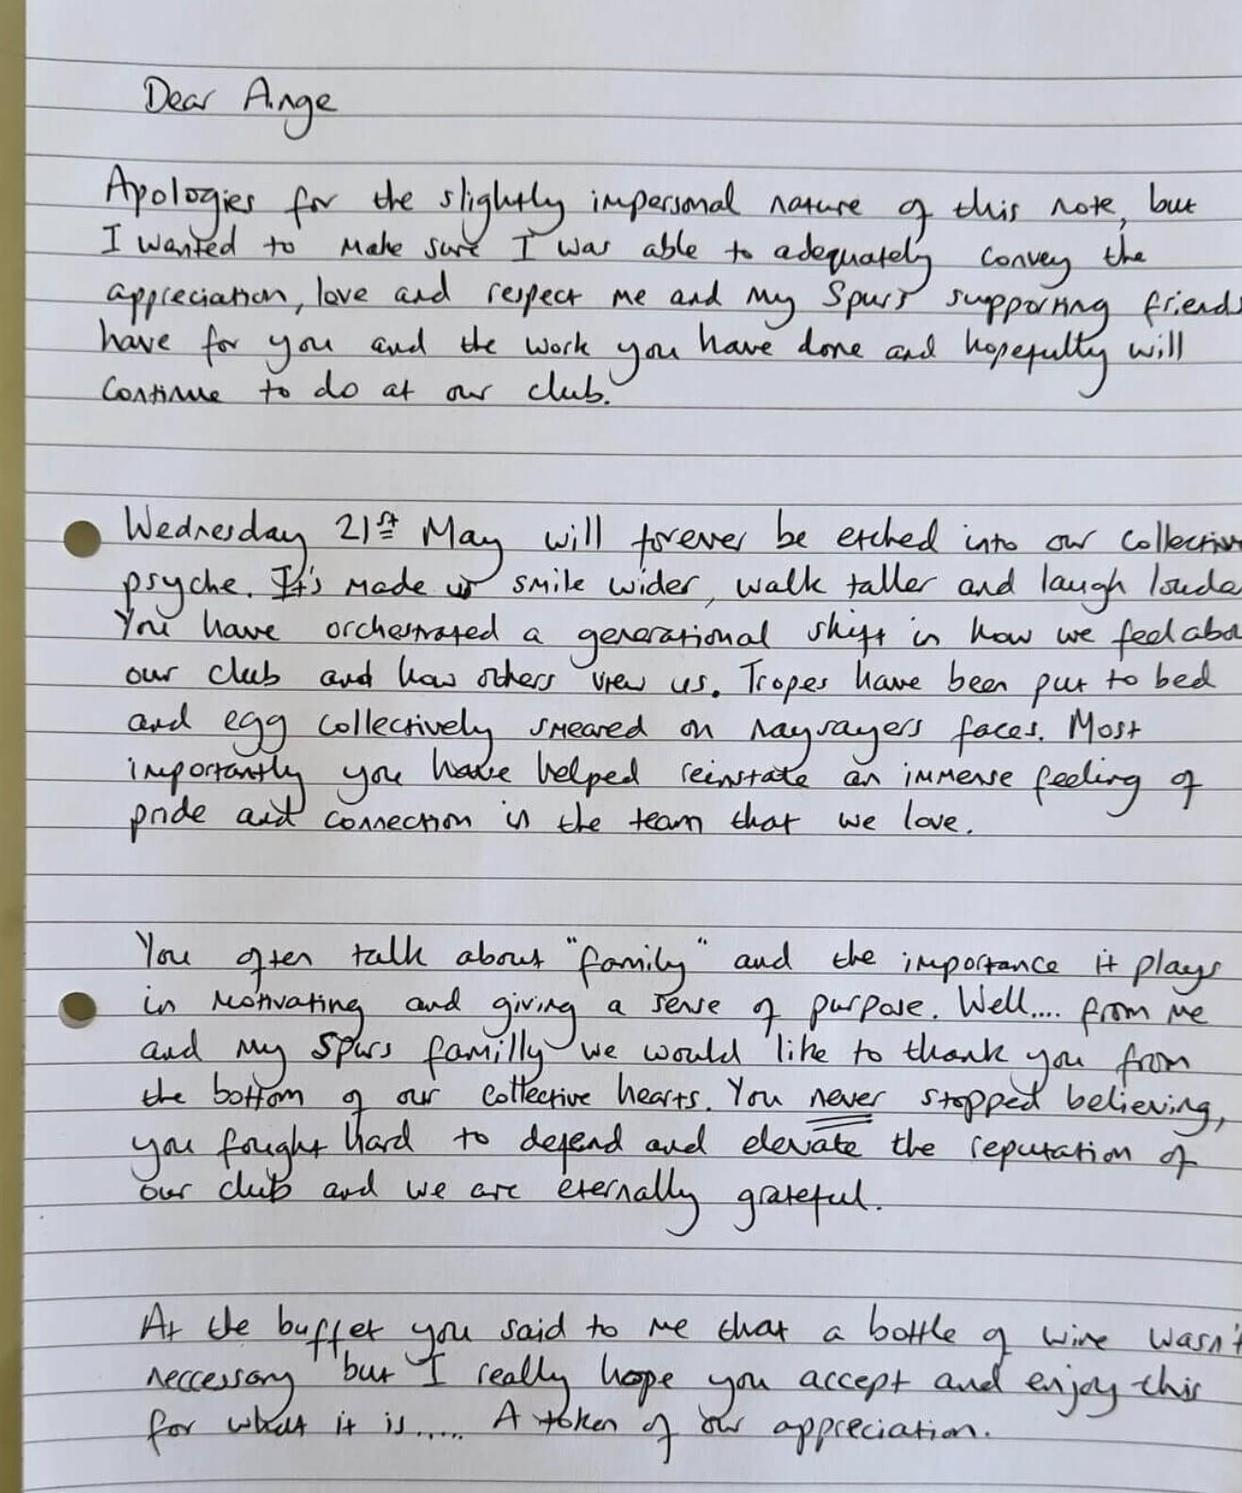 Dear Ange
Apologies for the slightly impersonal nature of this note, but
I wanted to make sure I was able to adequately convey the
appreciation, love and respect me and my Spurs supporting friends
have for you and the work you have done and hopefully will
continue to do at our club.
Wednesday 21st May will forever be etched into our collective
psyche. It's made us smile wider, walk taller and laugh loude
You have orchestrated a generational shift in how we feel abo
our club and how others view us. Tropes have been put to bed
and egg collectively smeared on naysayers faces. Most
importantly you have helped reinstate an immense feeling of
pride and connection in the team that we love.
You often talk about "family" and the importance it plays
in motivating and giving a sense of purpose. Well.... from me
and my Spurs familly we would like to thank you from
the bottom of our collective hearts. You never stopped believing,
you fought hard to defend and elevate the reputation of
our club and we are eternally grateful.
At the buffet you said to me that a bottle of wine wasn't
neccessary but I really hope you accept and enjoy this
for what it is..... A token of our appreciation.